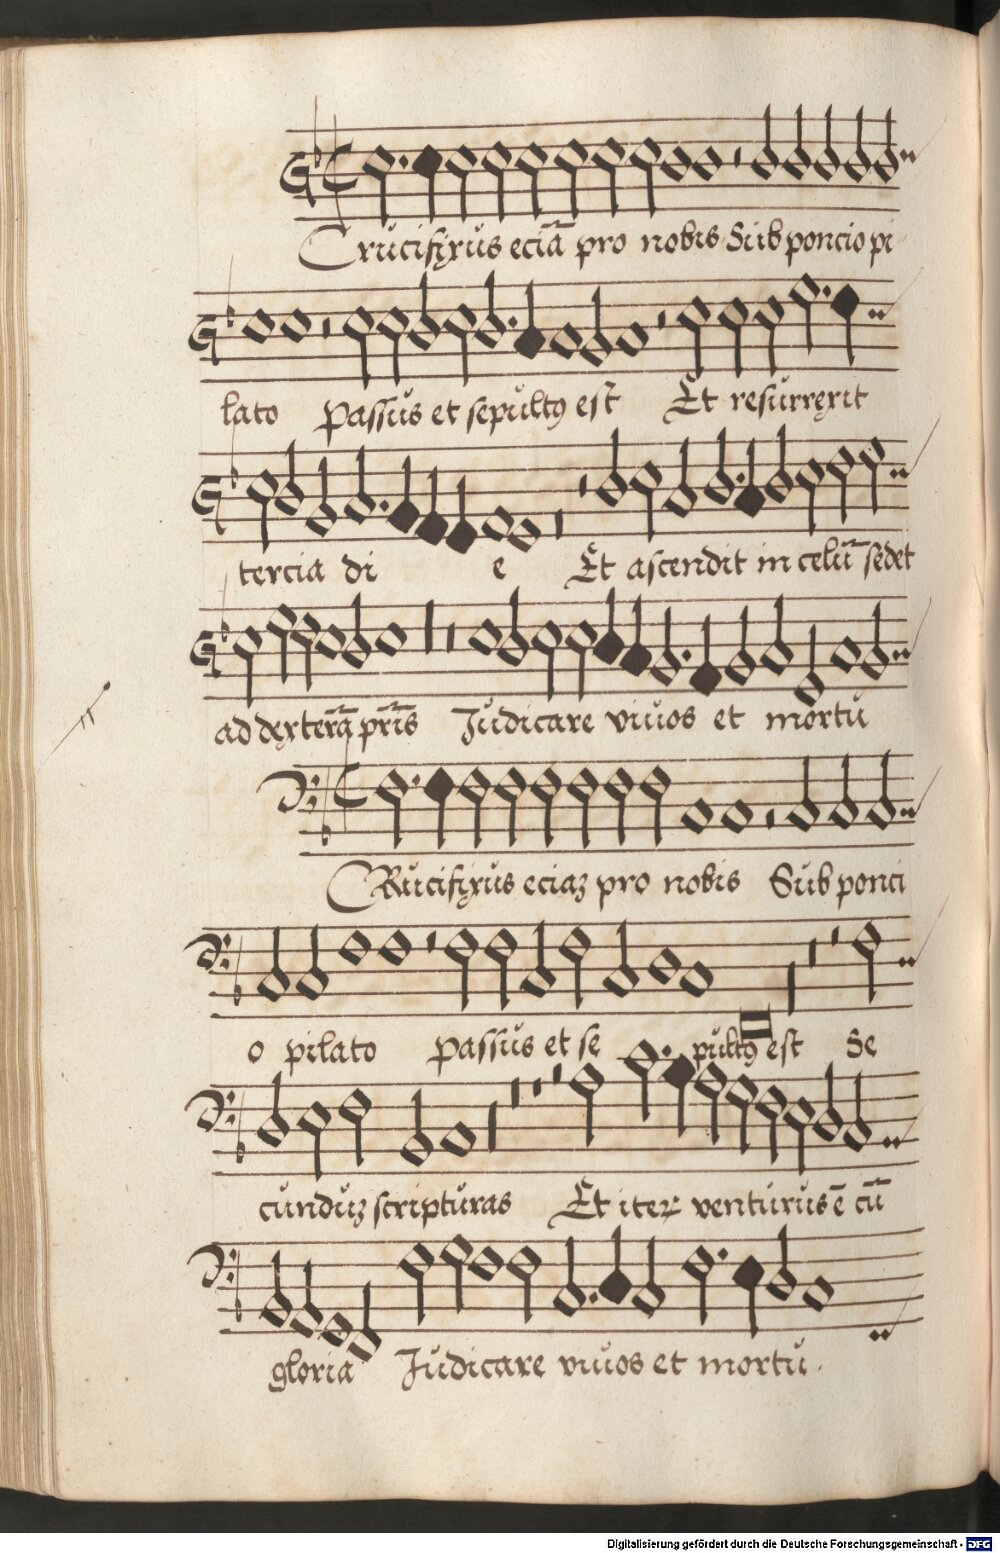 Crucifixus eciā pro nobis Sub poncio pi
lato Passus et sepultꝰ est Et resurrexit
tercia die Et ascendit in celū sedet
ad dexterā pr̄is Judicare viuos et mortu
CRucifixus eciaꝫ pro nobis Sub ponci
o pilato passus et se pultꝰ est Se
cunduꝫ scripturas Et iteꝝ venturus ē cū
gloria Judicare viuos et mortu.
Digitalisierung gefördert durch die Deutsche Forschungsgemeinschaft - DFG